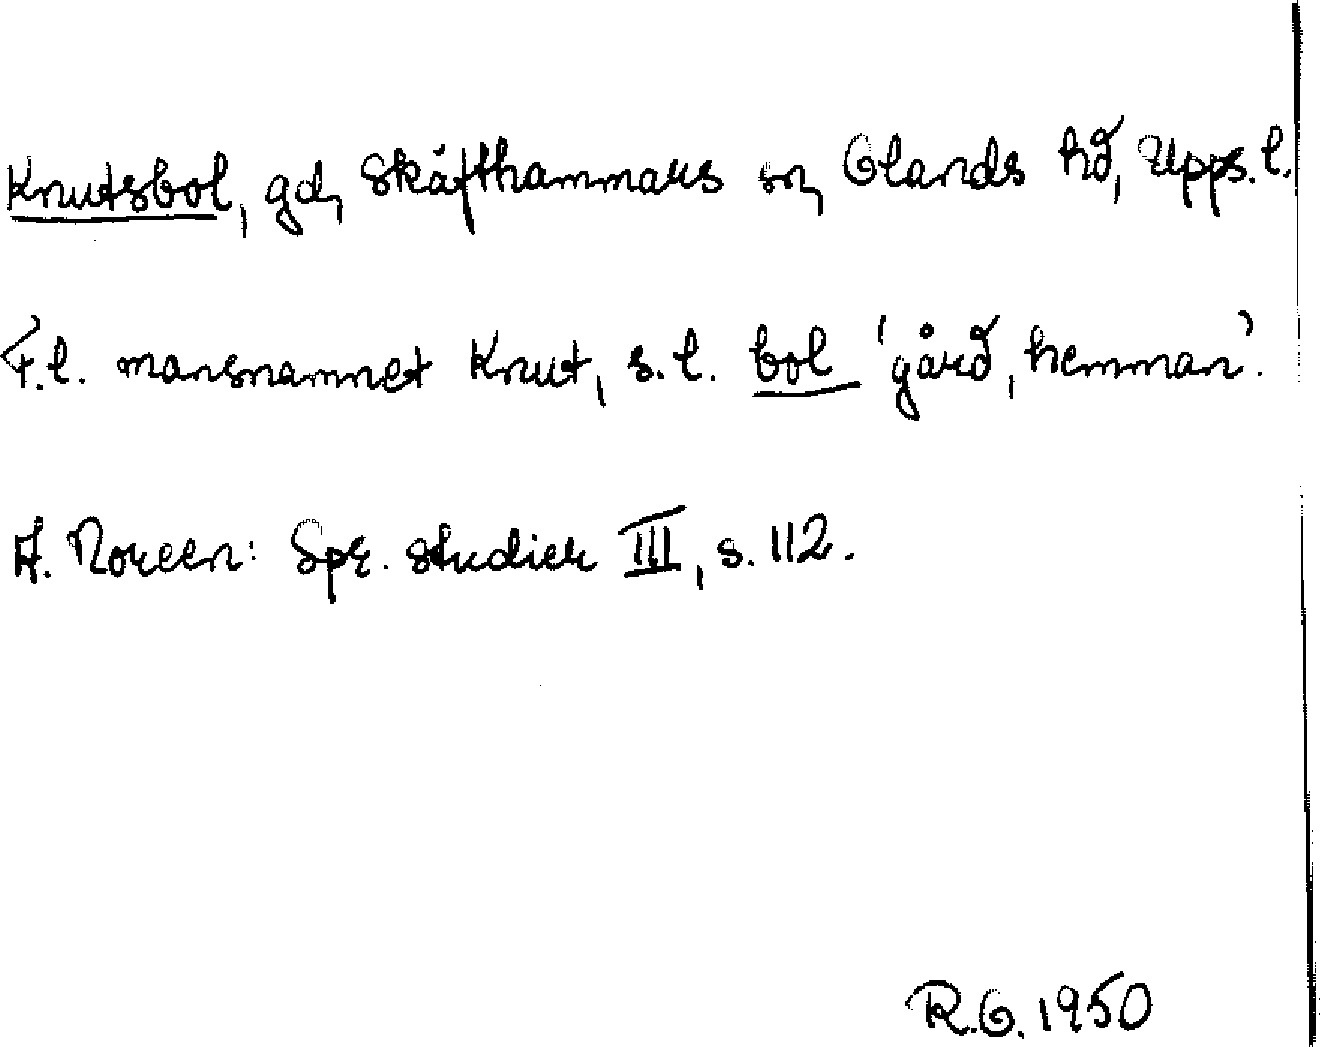 Knutsbol, gd, Skäfthammars sn, Olands hd, Upps. l.
F.l. mansnamnet Knut, s.l. bol 'gård, hemman'.
A. Noreen: Spr. studier III, s. 112.
R.O. 1950